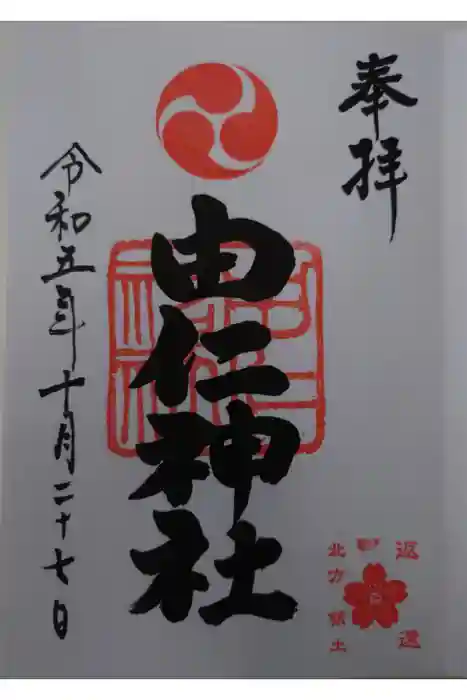 奉拝
由仁神社
令和五年十月二十七日
返還
北方領土